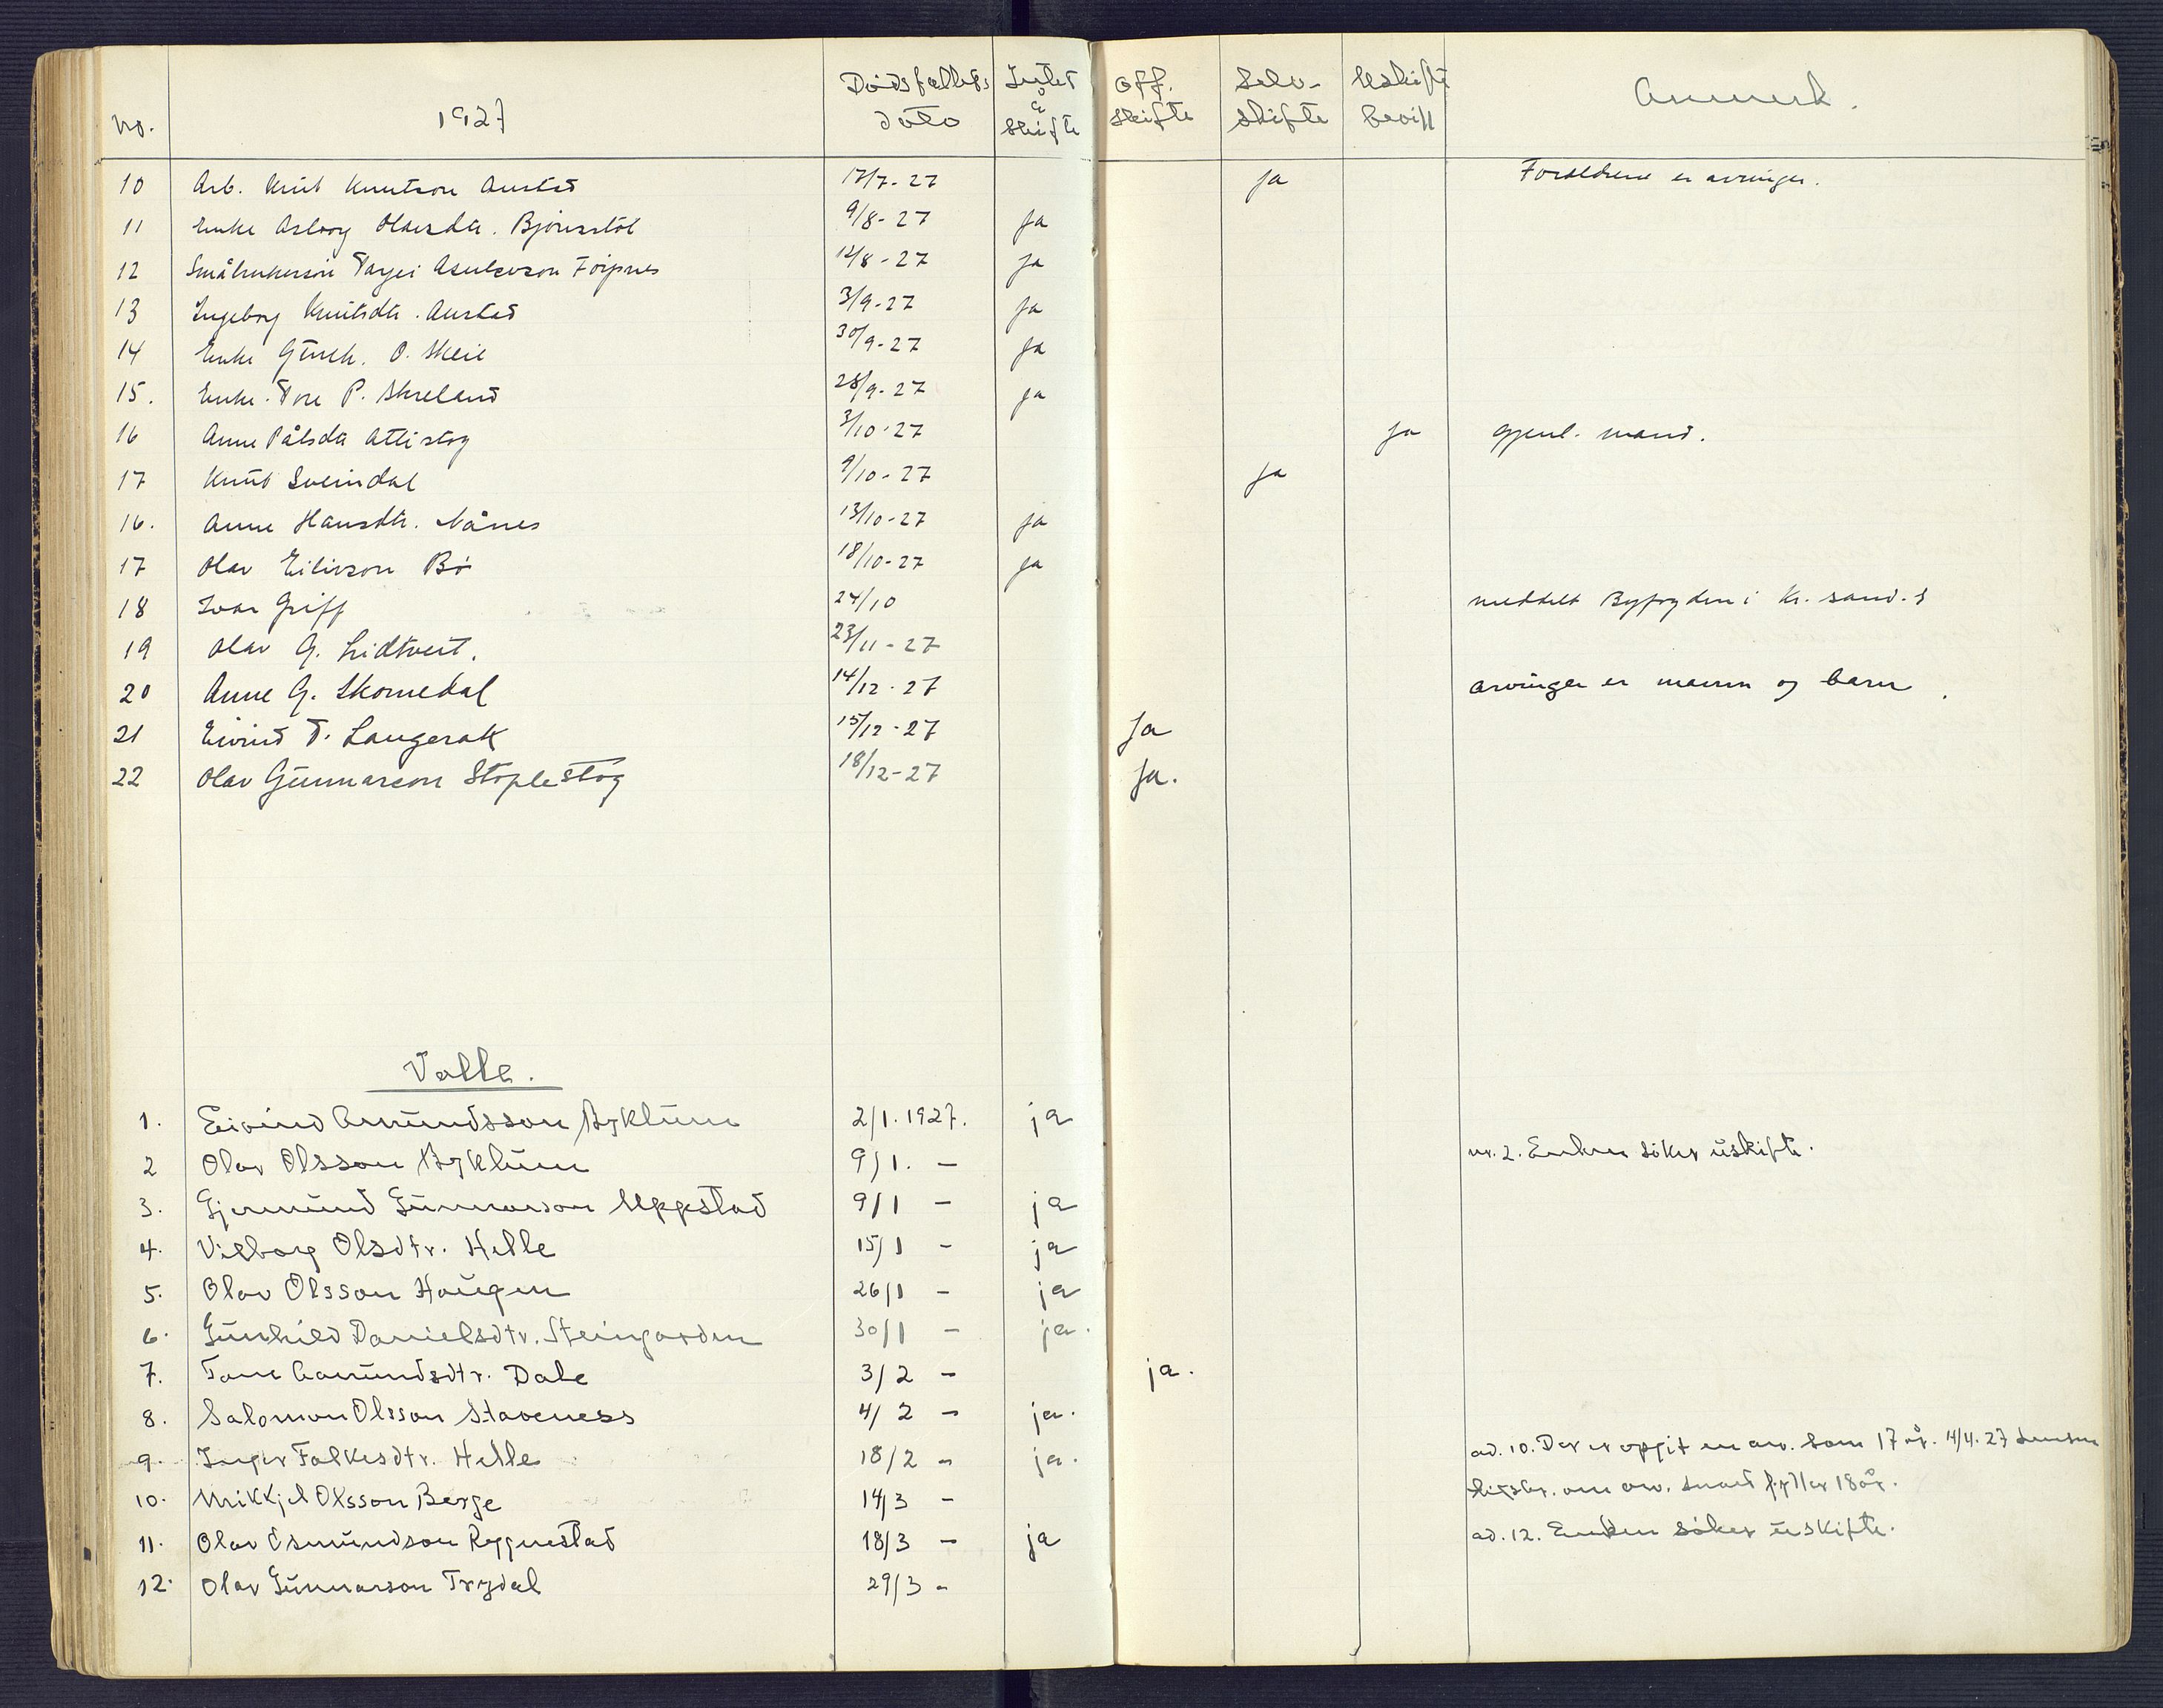 No. 1927 Dødsfallets dato Intet å skifte Off. skifte Selv- skifte Uskifte bevill Anmerk.
10 Arb. Knut Knutson Austad 17/7-27 ja Foreldrene er arvinger.
11 Enke Asborg Olavsdtr. Bjørnstøl 9/8-27 ja
12 Småbrukersøn Targei 12/8-27 ja
13 Ingeborg Knutsdtr. Austad 3/9-27 ja
14 Enke Gunh. O. Skeie 30/9-27 ja
15. Enke Tore P. Skreland 28/9-27 ja
16 Anne Pålsdtr Attistog 3/10-27 ja gjenl. mand.
17 Knut Sveindal 9/10-27 ja
16. Anne Hansdtr. Nånes 13/10-27 ja
17 Olav Eilivson Bø 18/10-27 ja
18 Ivar Griff 24/10 meddelt Byfogden i Kr.sand. S
19 Olav G. Lidtveit. 23/11-27
20 Anne G. Skomedal 14/12-27 arvinger er mann og barn.
21 Eivind T. Langerak 15/12-27 Ja
22 Olav Gunnarson Stoplestog 18/12-27 Ja.
Valle.
1. Eivind Amundsson Byklum 2/1.1927. ja
2 Olav Olsson Byklum 9/1. - nr. 2. Enken søker uskifte.
3. Gjermund Gunnarson Uppstad 9/1 - ja
4. Vilborg Olsdtr. Helle 15/1 - ja
5. Olav Olsson Haugen 26/1 - ja
6. Gunhild Danielsdtr. Steingarden 30/1 - ja.
7. Tone Aamundsdtr. Dale 3/2 - ja.
8. Salomon Olsson Staveness 4/2 - ja.
9. Inger Falkesdtr. Helle 18/2 - ja.
ad. 10. Der er oppgit en arv. som 17 år. 4/4.27
10. Mikkjel Olsson Berge 14/3 - om arv. snart fyller 18 år.
11. Olav Osmundson Rygnestad 18/3 - ja ad. 12. Enken søker uskifte.
12. Olav Gunnarson Trydal 29/3 -